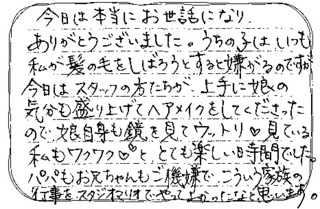 今日は本当にお世話になり、
ありがとうございました。うちの子はいつも
私が髪の毛をしばろうとすると嫌がるのですが
今日はスタッフの方たちが、上手に娘の
気分も盛り上げてヘアメイクをしてくださった
ので、娘自身も鏡を見てウットリ♡見ている
私もワクワク♡と、とても楽しい日時間でした。
パパもお兄ちゃんもご機嫌で、こういう家族の
行事をスタジオマリオでやってよかったなと思います。